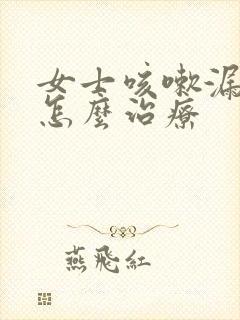 女士咳嗽漏
怎麼治療
燕飛紅